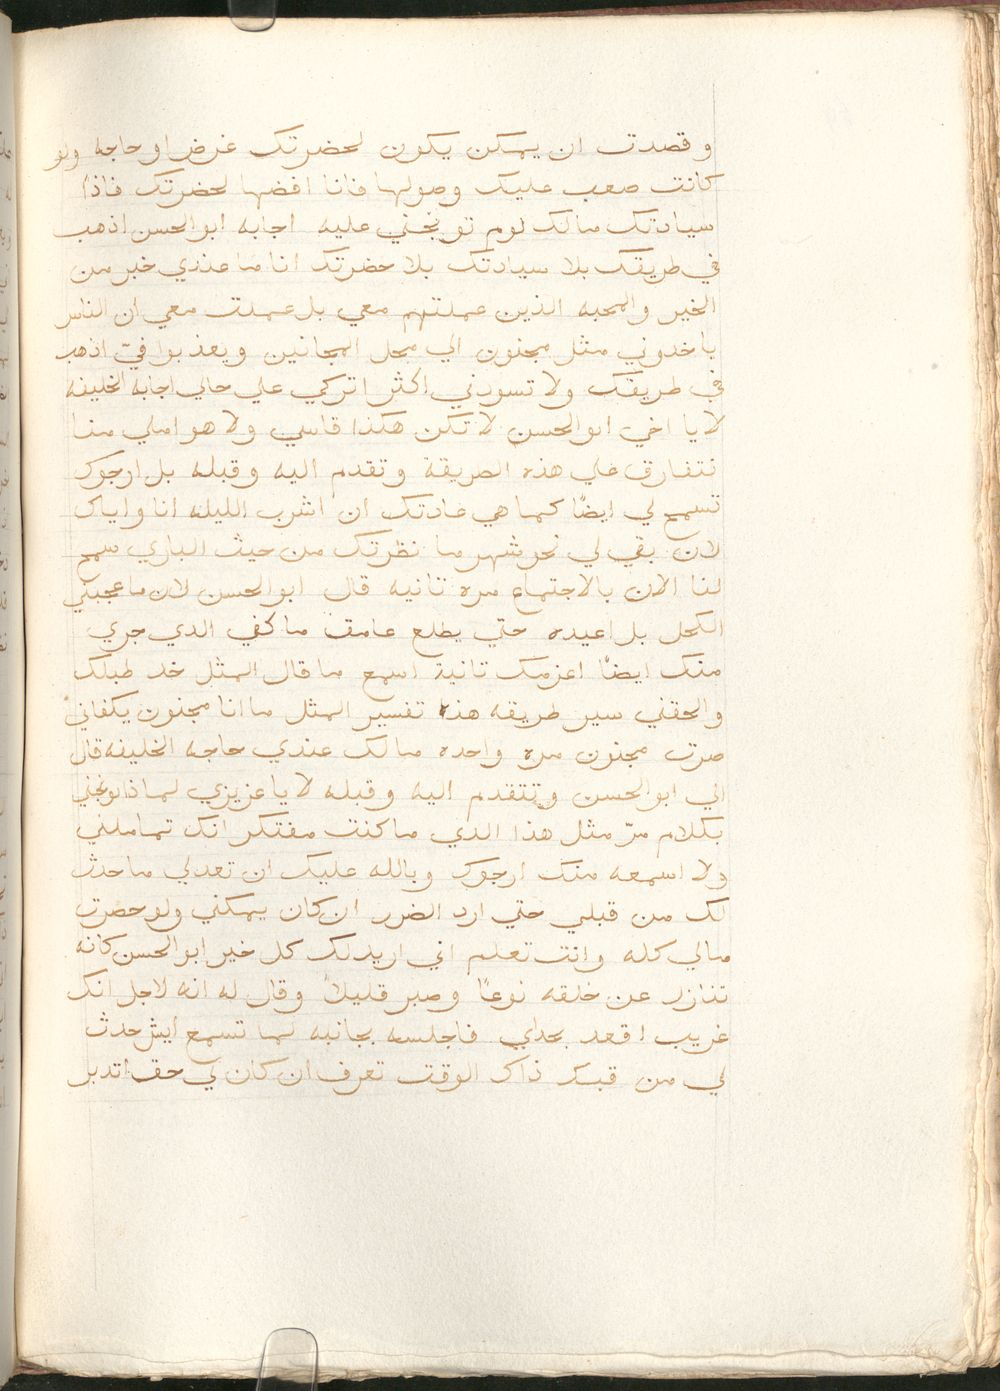 وقصدت ان يمكن يكون لحضرتك غرض او حاجه ولو
كانت صعب عليك وصولها فانا اقضها لحضرتك فاذا
سيادتك مالك لوم توبخني عليه اجابه ابو الحسن اذهب
في طريقك بلا سيادتك بلا حضرتك انا ما عندي خبر من
الخير والمحبه الذين عملتهم معي بل عملت معي ان الناس
ياخدوني مثل مجنون الي محل المجانين ويعذبوا فيّ اذهب
في طريقك ولا تسودني اكثر اتركي علي حالي اجابه الخليفه
لا يا اخي ابو الحسن لا تكن هكذا قاسي ولا هو املي منا
نتفارق علي هذه الطريقة وتقدم اليه وقبله بل ارجوك
تسمح لي ايضًا كما هي عادتك ان اشرب الليله انا واياك
لان بقي لي نحو شهر ما نظرتك من حيث الباري سمح
لنا الان بالاجتماع مره تانيه قال ابو الحسن لان ما عجبني
الكحل بل اعيده حتي يطلع عامق ما كفي الدي جري
منك ايضًا اعزمك تانية اسمع ما قال المثل خد طبلك
والحقني سير طريقه هذه تفسير المثل ما انا مجنون يكفاني
صرت مجنون مره واحده مالك عندي حاجه الخليفه قال
الي ابو الحسن وتتقدم اليه وقبله لا يا عزيزي لماذا توبخني
بكلام مرّ مثل هذا الدي ما كنت مفتكر انك تعاملني
ولا اسمعه منك ارجوك وبالله عليك ان تعد لي ما حدث
لك من قبلي حتي ارد الضرر ان كان يمكني ولو حضرت
مالي كله وانت تعلم اني اريد لك كل خير ابو الحسن كانه
تنازل عن خلقه نوعًا وصبر قليلاً وقال له انه لاجل انك
غريب اقعد بحداي فاجلسه بجانبه لما تسمع ايش حدث
لي من قبلك ذاك الوقت تعرف ان كان لي حق اتدبر